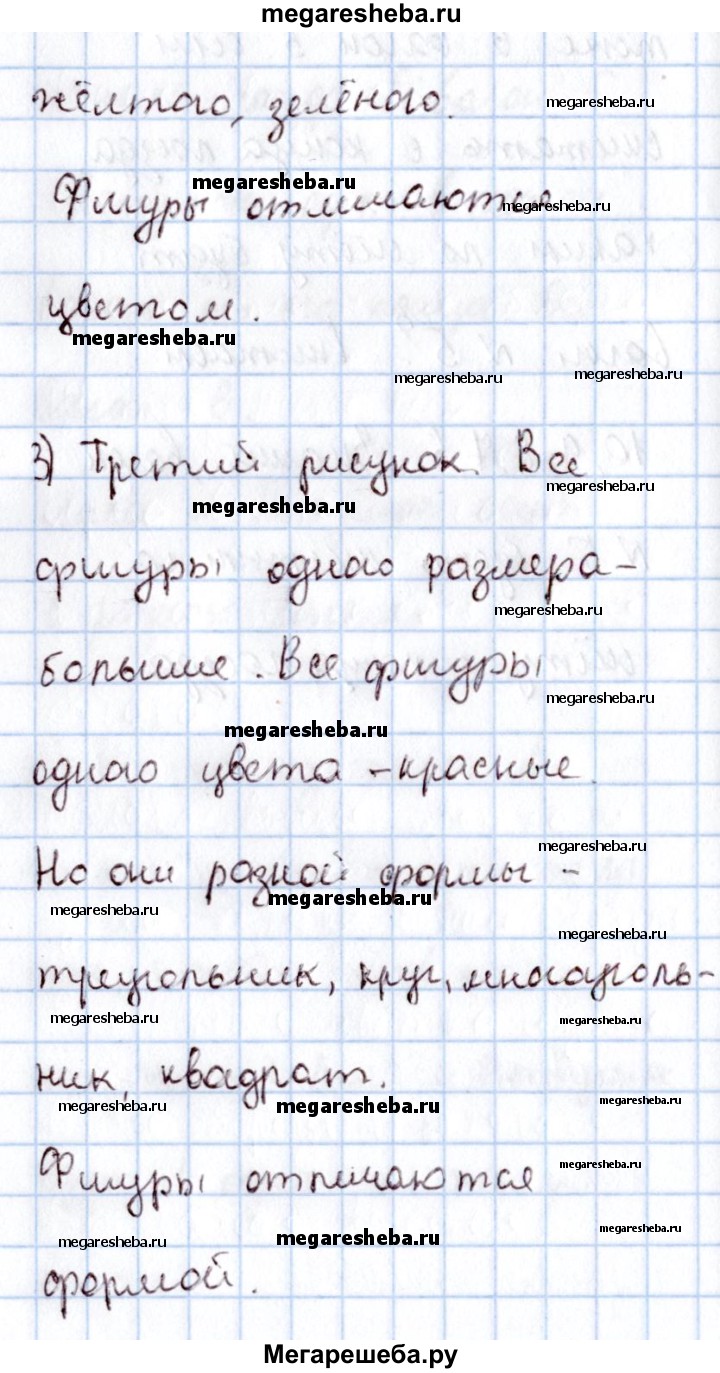 megaresheba.ru
жёлтого, зелёного.
megaresheba.ru
megaresheba.ru
Фигуры отличаются
megaresheba.ru
цветом.
megaresheba.ru
megaresheba.ru
megaresheba.ru
3) Третий рисунок. Все
megaresheba.ru
megaresheba.ru
фигуры одного размера-
megaresheba.ru
большие. Все фигуры
megaresheba.ru
megaresheba.ru
одного цвета - красные.
megaresheba.ru
Но они разной формы -
megaresheba.ru
megaresheba.ru
megaresheba.ru
треугольник, круг, многоуголь-
megaresheba.ru
megaresheba.ru
ник, квадрат.
megaresheba.ru
megaresheba.ru
megaresheba.ru
Фигуры отличаются
megaresheba.ru
megaresheba.ru
megaresheba.ru
megaresheba.ru
формой.
Мегарешеба.ру